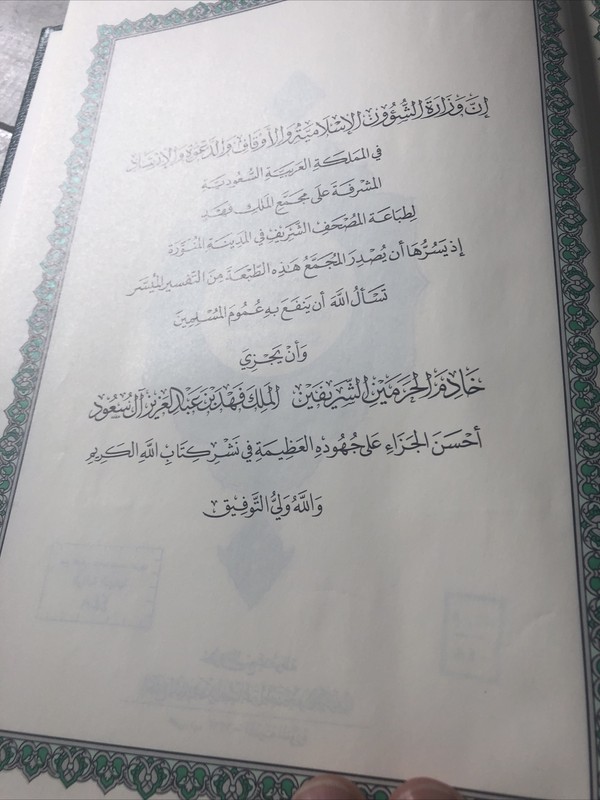 إنَّ وَزَارَةَ الشُّؤُونِ الإِسْلَامِيَّةِ وَالأَوْقَافِ وَالدَّعْوَةِ وَالإِرْشَادِ
فِي المَمْلَكَةِ العَرَبِيَّةِ السُّعُودِيَّةِ
المُشْرِفَةَ عَلَى مُجَمَّعِ المَلِكِ فَهْدٍ
لِطِبَاعَةِ المُصْحَفِ الشَّرِيفِ فِي المَدِينَةِ المُنَوَّرَةِ
إِذْ يَسُرُّهَا أَن يُصْدِرَ المُجَمَّعُ هَذِهِ الطَّبْعَةَ مِنَ التَّفْسِيرِ المُيَسَّرِ
تَسْأَلُ اللَّهَ أَن يَنفَعَ بِهِ عُمُومَ المُسْلِمِينَ
وَأَنْ يَجْزِيَ
خَادِمَ الحَرَمَيْنِ الشَّرِيفَيْنِ المَلِكَ فَهْدَ بْنَ عَبْدِ العَزِيزِ آلَ سُعُود
أَحْسَنَ الجَزَاءِ عَلَى جُهُودِهِ العَظِيمَةِ فِي نَشْرِ كِتَابِ اللَّهِ الكَرِيمِ
وَاللَّهُ وَلِيُّ التَّوْفِيقِ